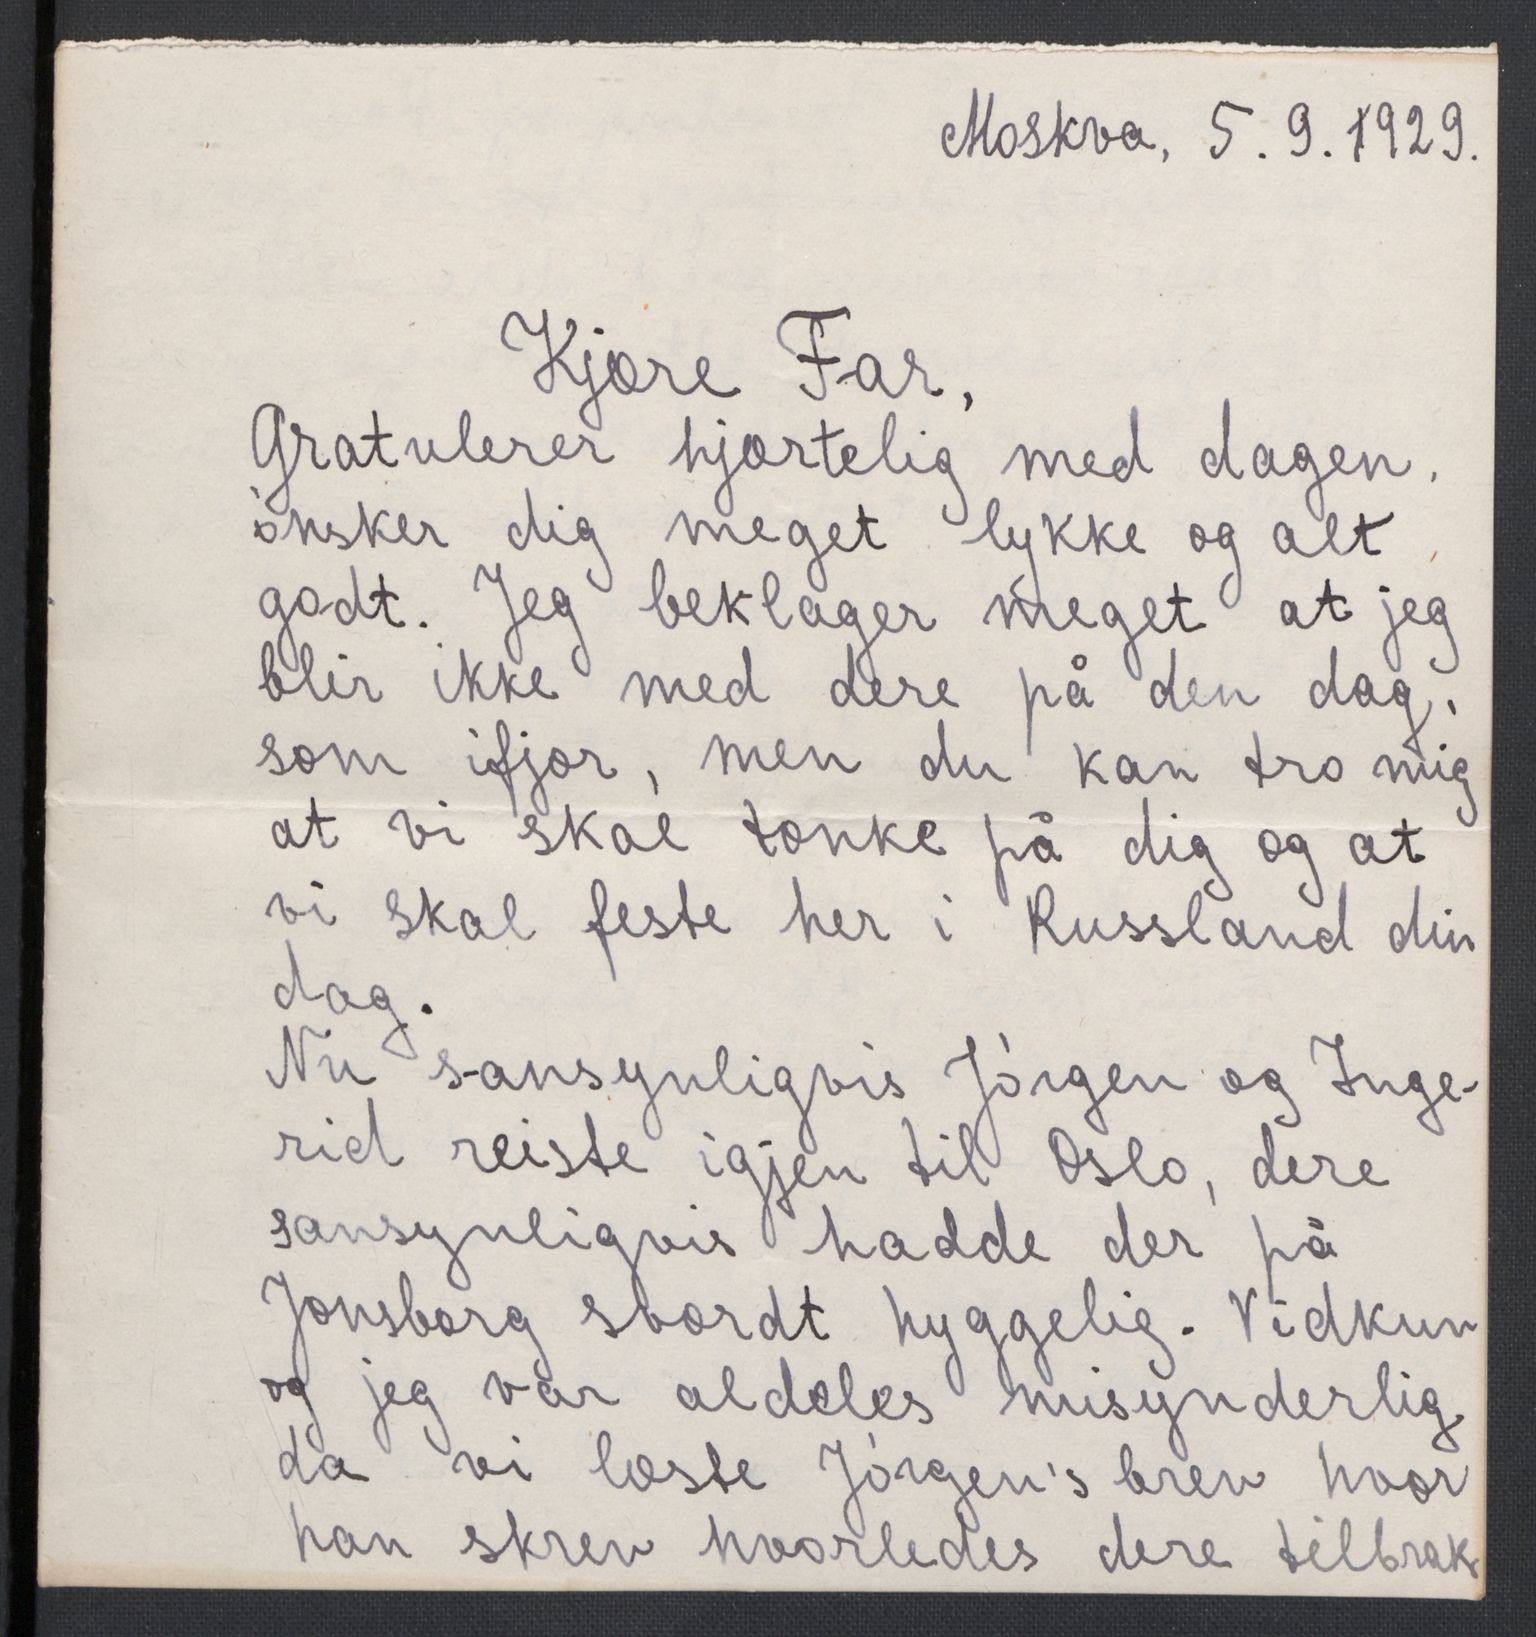 Moskva, 5. 9. 1929.
Kjære Far,
Gratulerer hjærtelig med dagen,
ònsker dig meget lykke og alt
godt. Jeg beklager meget at jeg
blir ikke med dere på den dag,
som ifjor, men du kan tro mig
at vi skal tænke på dig og at
vi skal feste her i Russland din
dag.
Nu sansynligvis Jórgen og Inge-
rid reiste igjen til Oslo, dere
sansynligvis hadde der på
Jonsborg sværdt hyggelig. Vidkun
og jeg var aldeles misynderlig
da vi læste Jórgen's brev hvor
han skrev hvorledes dere tilbrak